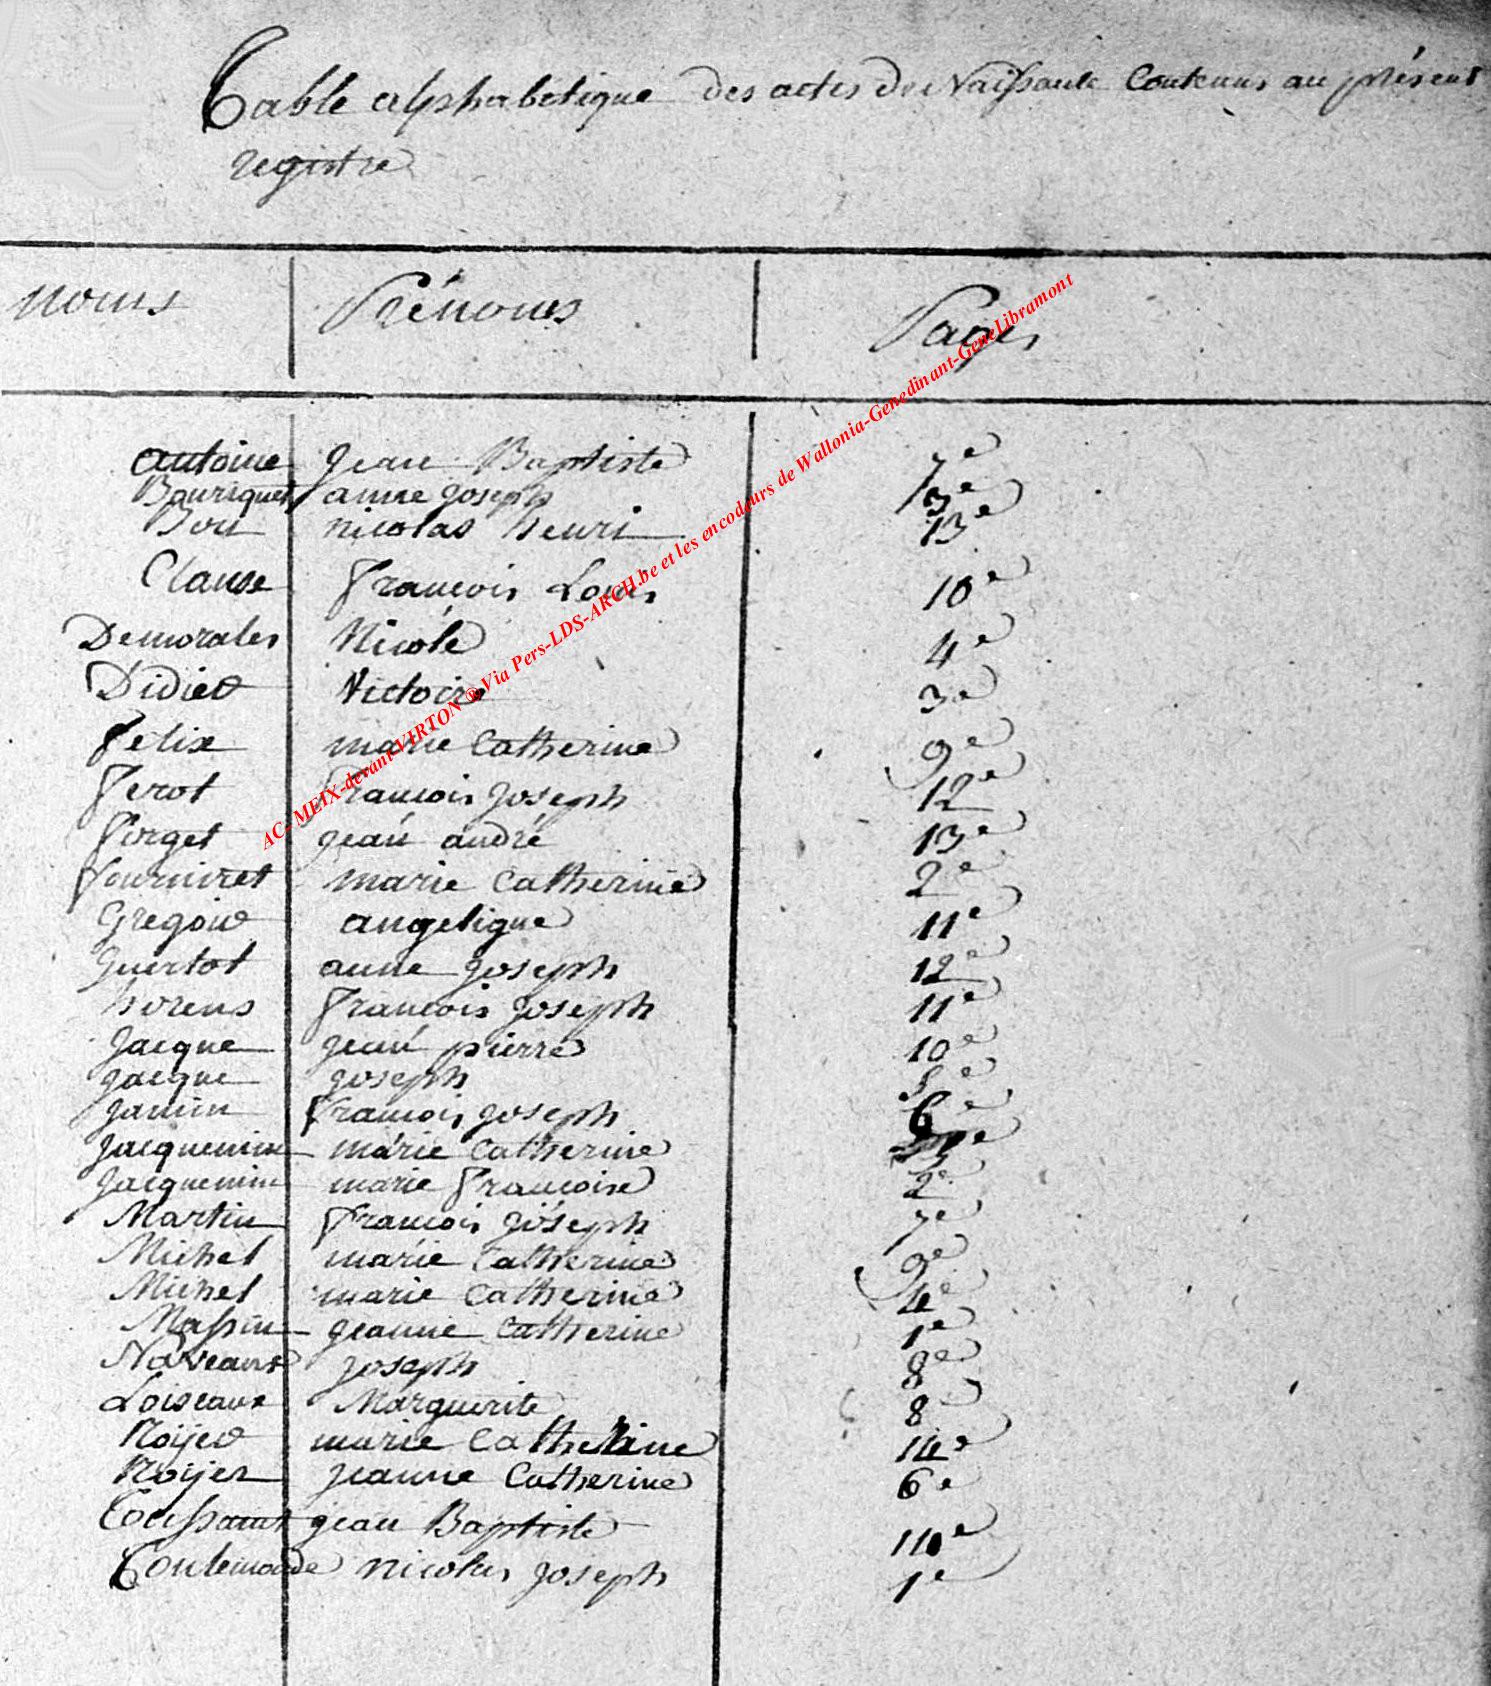 Table alphabétique des actes de Naissance Contenus au présent
registre
Noms Prénoms Pages
antoine jean Baptiste 7e
Bouriquet anne joseph
Bon nicolas henri 13e
Clause François Louis 10e
Demorales Nicole 4e
Didier Victoire 3e
Felix marie Catherine 9e
Ferot François joseph 12e
Forget jean andré 13e
Fourniret marie Catherine 2e
Gregoire angelique 11e
guertot anne joseph 12e
horens François joseph 11e
jacque jean pierre 10e
jacque joseph 5e
jamin François joseph 6e
jacquemin marie Catherine
jacquemin marie Françoise 2e
Martin François joseph 7e
Michel marie Catherine 9e
Michel marie Catherine 4e
Massin jeanne Catherine 1e
Naveaux joseph 8e
Loiseaux Marguerite 8
Roijer marie Catherine 14e
Roijer jeanne Catherine 6e
Toussaint jean Baptiste
Toutemonde nicolas joseph 1e
AC- MEIX-devant-VIRTON ® Via Pers-LDS-ARCH.be et les encodeurs de Wallonia-Genedinant-GeneLibramont